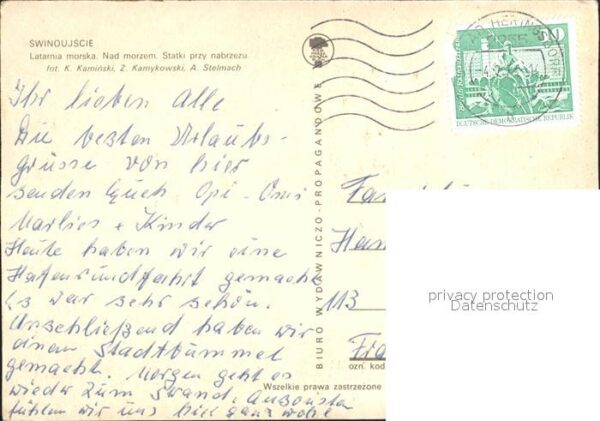 SWINOUJSCIE
Latarnia morska. Nad morzem. Statki przy nabrzeżu
fot. K. Kamiński, Z. Kamykowski, A. Stelmach
Ihr lieben alle
Die besten Urlaubs-
grüsse von hier
senden Euch Opi - Omi
Marlies + Kinder
Heute haben wir eine
Hafenrundfahrt gemacht
Es war sehr schön.
Anschließend haben wir
einen Stadtbummel
gemacht. Morgen geht es
wieder zum Strand. Ansonsten
fühlen wir uns hier ganz wohl
BIURO WYDAWNICZO-PROPAGANDOWE
HERINGSDORF
2255
10
DEUTSCHE DEMOKRATISCHE REPUBLIK
Fam
Han
113
Fra
ozn. kod
Wszelkie prawa zastrzeżone
privacy protection
Datenschutz